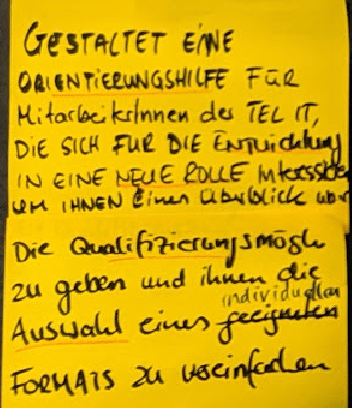 GESTALTET EINE
ORIENTIERUNGSHILFE FÜR
MitarbeiterInnen der TEL IT,
DIE SICH FÜR DIE Entwicklung
IN EINE NEUE ROLLE Interessieren
UM IHNEN Einen Überblick über
Die Qualifizierungsmögl
zu geben und ihnen die
individuellen
Auswahl eines geeigneten
FORMATS zu vereinfachen